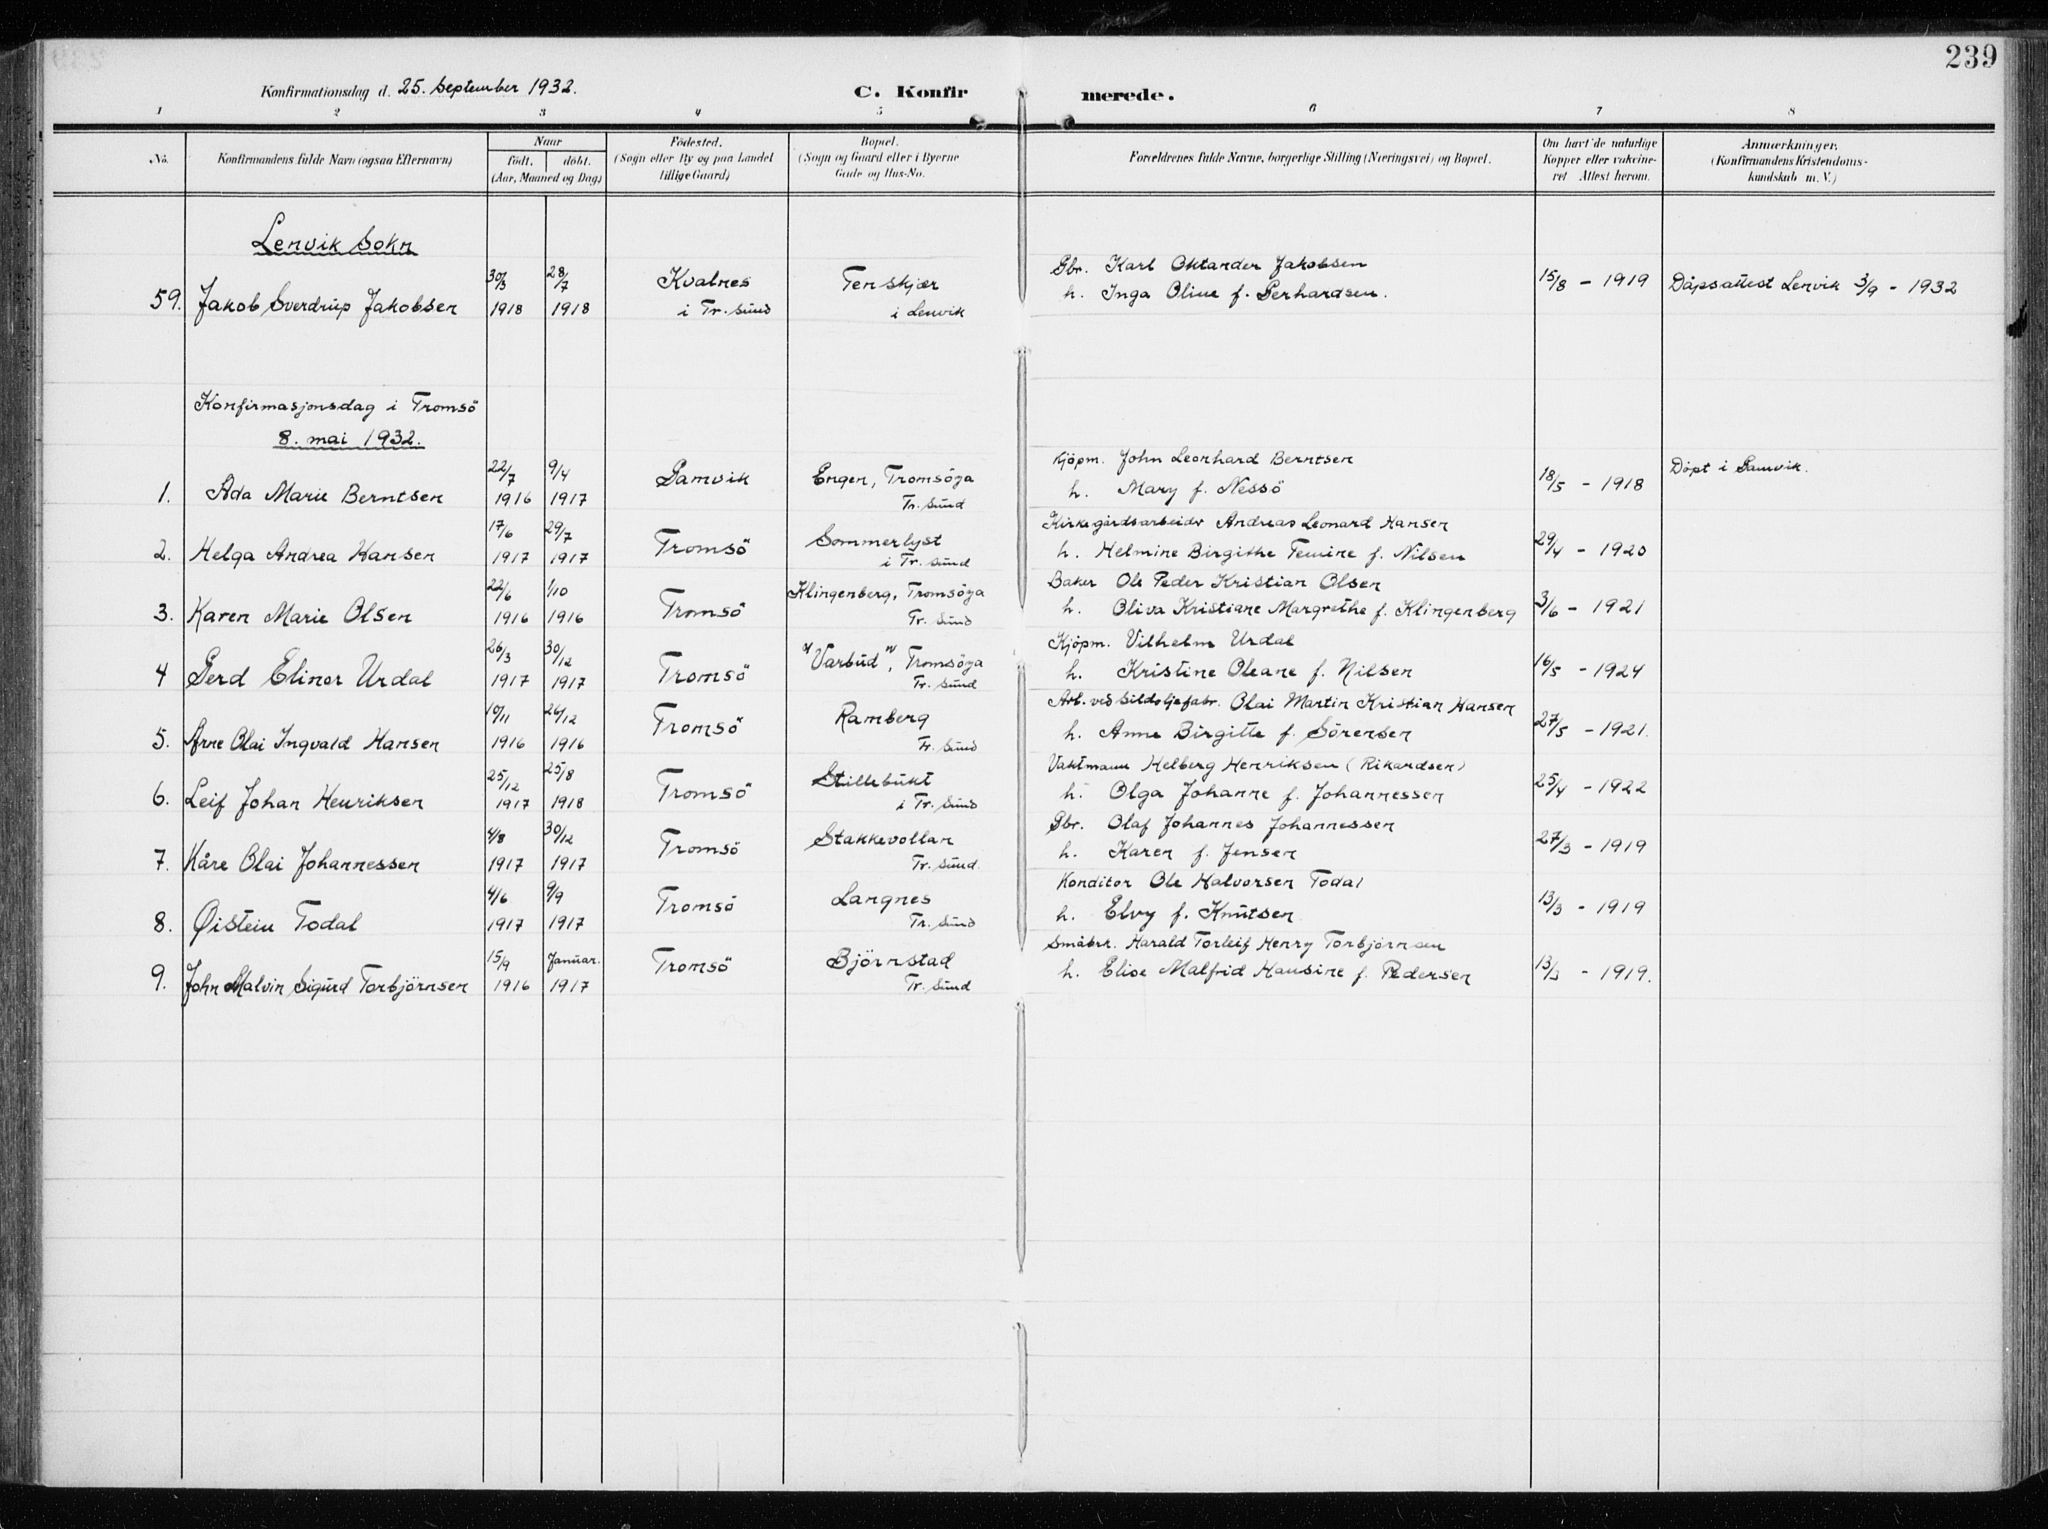 239
Konfirmationsdag d. 25. September 1932.
C. Konfirmerede.
1 2 3 4 5 6 7 8
No. Konfirmandens fulde Navn (ogsaa Efternavn) Naar Födested. Bopæl. Forældrenes fulde Navne, borgerlige Stilling (Næringsvei) og Bopæl. Om havt de naturlige Anmærkninger.
födt. döbt. (Sogn eller By og paa Landet (Sogn og Gaard eller i Byerne Kopper eller vakcine- (Konfirmandens Kristendoms-
(Aar, Maaned og Dag) tillige Gaard) Gade og Hus-No. ret Attest herom. kundskab m. V.)
Lenvik Sokn
30/3 28/7 Kvalnes Tenskjær Gbr. Karl Oktander Jakobsen 15/8 - 1919 Dåpsattest Lenvik 3/9 - 1932
59. Jakob Sverdrup Jakobsen 1918 1918 i Tr. sund i Lenvik h. Inga Oline f. Gerhardsen.
Konfirmasjonsdag i Tromsö
8. mai 1932.
22/7 9/4 Gamvik Engen, Tromsöya Kjöpm. John Leonhard Berntsen 18/5 - 1918 Döpt i Gamvik.
1. Ada Marie Berntsen 1916 1917 Tr. sund h. Mary f. Nessö
17/6 29/7 Tromsö Sommerlyst Kirkegårdsarbeider Andreas Leonard Hansen 29/4 - 1920
2. Helga Andrea Hansen 1917 1917 i Tr. sund h. Helmine Birgithe f. Nilsen
22/6 1/10 Tromsö Klingenberg, Tromsöya Baker Ole Peder Kristian Olsen 3/6 - 1921
3. Karen Marie Olsen 1916 1916 Tr. sund h. Oliva Kristiane Margrethe f. Klingenberg
26/3 30/12 Tromsö "Varbud", Tromsöya Kjöpm. Vilhelm Urdal 16/5 - 1924
4 Gerd Elinor Urdal 1917 1917 Tr. sund h. Kristine Oleane f. Nilsen
10/11 26/12 Tromsö Ramberg Arb. ved Sildoljefabr. Olai Martin Kristian Hansen 27/5 - 1921.
5. Arne Olai Ingvald Hansen 1916 1916 Tr. sund h. Anne Birgitte f. Sörensen
25/12 25/8 Tromsö Stillebukt Vaktmann Helberg Henriksen (Rikardsen) 25/4 - 1922
6. Leif Johan Henriksen 1917 1918 i Tr. sund h. Olga Johanne f. Johannessen
4/8 30/12 Tromsö Stakkevollan Gbr. Olaf Johannes Johannessen 27/3 - 1919
7. Kåre Olai Johannessen 1917 1917 Tr. sund. h. Karen f. Jensen
4/6 9/9 Tromsö Langnes Konditor Ole Halvorsen Todal 13/3 - 1919
8. Øistein Todal 1917 1917 Tr. sund h. Elvy f. Knutsen
15/9 Januar. Tromsö Björnstad Småbr. Harald Torleif Henry Torbjörnsen 13/3 - 1919.
9. John Malvin Sigurd Torbjörnsen 1916 1917 Tr. sund h. Elise Malfrid Hansine f. Pedersen